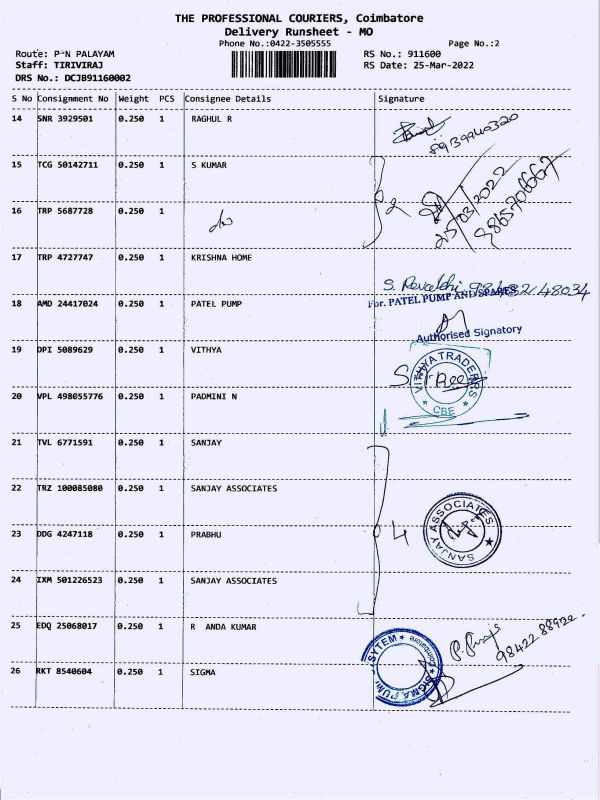 THE PROFESSIONAL COURIERS, Coimbatore
Delivery Runsheet - MO
Phone No.:0422-3505555
Page No.:2
Route: P N PALAYAM
RS No.: 911600
Staff: TIRIVIRAJ
RS Date: 25-Mar-2022
DRS No.: DCJB91160002
S No Consignment No Weight PCS Consignee Details Signature
14 SNR 3929501 0.250 1 RAGHUL R
8939940320
15 TCG 50142711 0.250 1 S KUMAR
16 TRP 5687728 0.250 1
2 25/03/2022
9865706667
17 TRP 4727747 0.250 1 KRISHNA HOME
S. Revathi
18 AMD 24417024 0.250 1 PATEL PUMP
For. PATEL PUMP AND SPARES
Authorised Signatory
19 DPI 5089629 0.250 1 VITHYA
VITHYA TRADERS
CBE
20 VPL 498055776 0.250 1 PADMINI N
21 TVL 6771591 0.250 1 SANJAY
22 TRZ 100085080 0.250 1 SANJAY ASSOCIATES
23 DDG 4247118 0.250 1 PRABHU
4
SANJAY ASSOCIATES
24 IXM 501226523 0.250 1 SANJAY ASSOCIATES
25 EDQ 25068017 0.250 1 R ANDA KUMAR
98422 88922
26 RKT 8540604 0.250 1 SIGMA
SIGMA PUMP SYTEM
Coimbatore